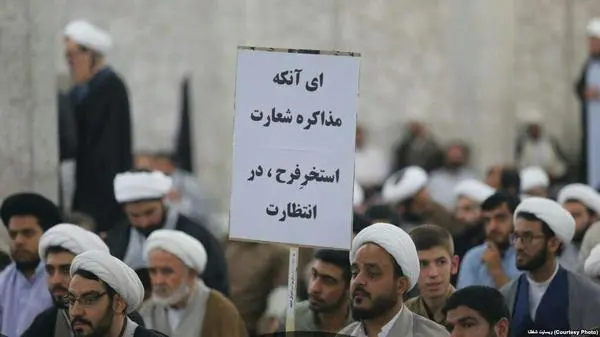 ای آنکه
مذاکره شعارت
استخر فرح ، در
انتظارت
وبسایت شفقنا (Courtesy Photo)